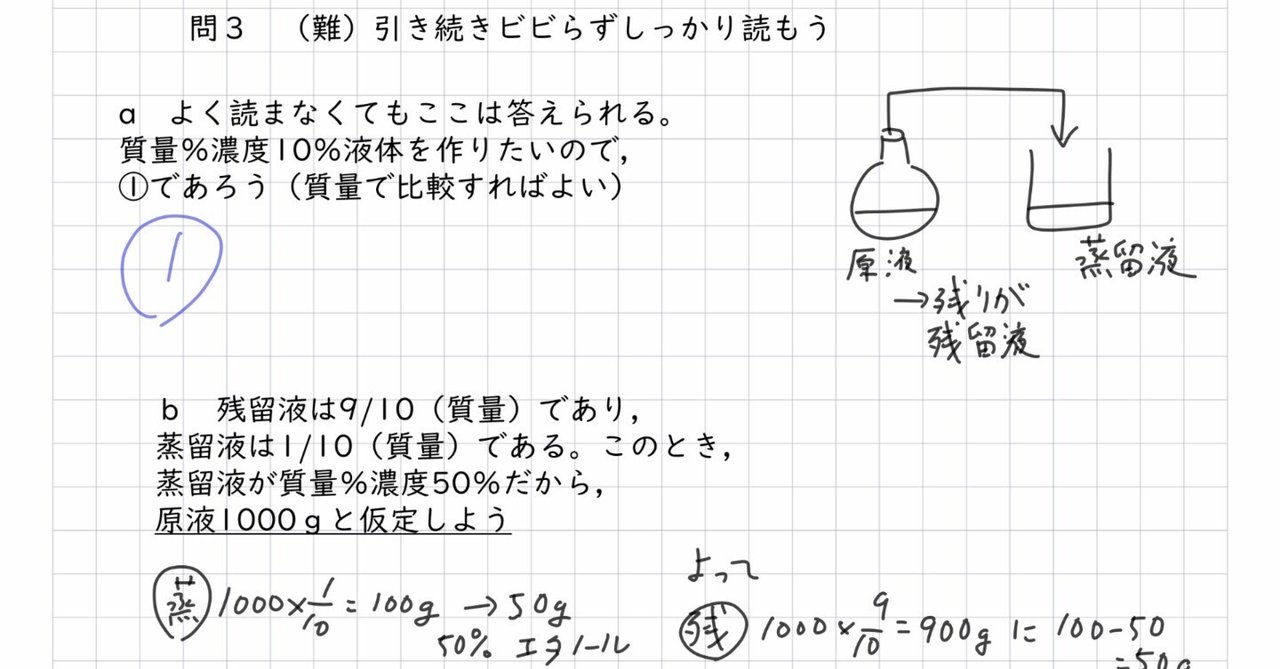 問3 （難）引き続きビビらずしっかり読もう
a よく読まなくてもここは答えられる。
質量%濃度10%液体を作りたいので,
①であろう（質量で比較すればよい）
1
原液
→残りが
残留液
蒸留液
b 残留液は9/10（質量）であり,
蒸留液は1/10（質量）である。このとき,
蒸留液が質量%濃度50%だから,
原液1000gと仮定しよう
蒸 1000×1/10=100g →50g
50% エタノール
よって
残 1000×9/10=900gに100-50
=50g